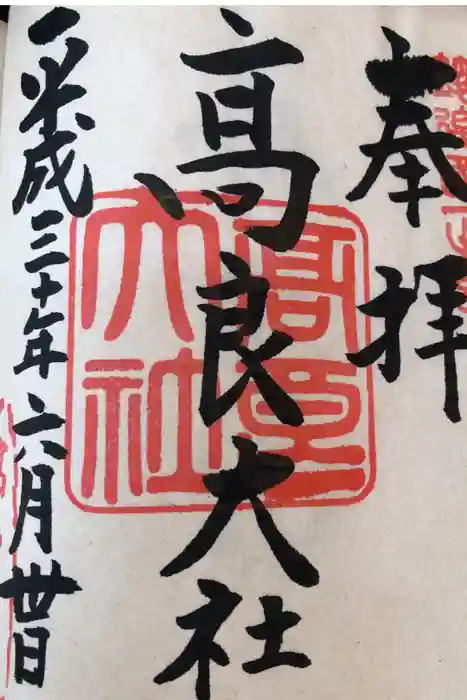 奉拝
高良大社
平成三十年六月卅日
高良大社